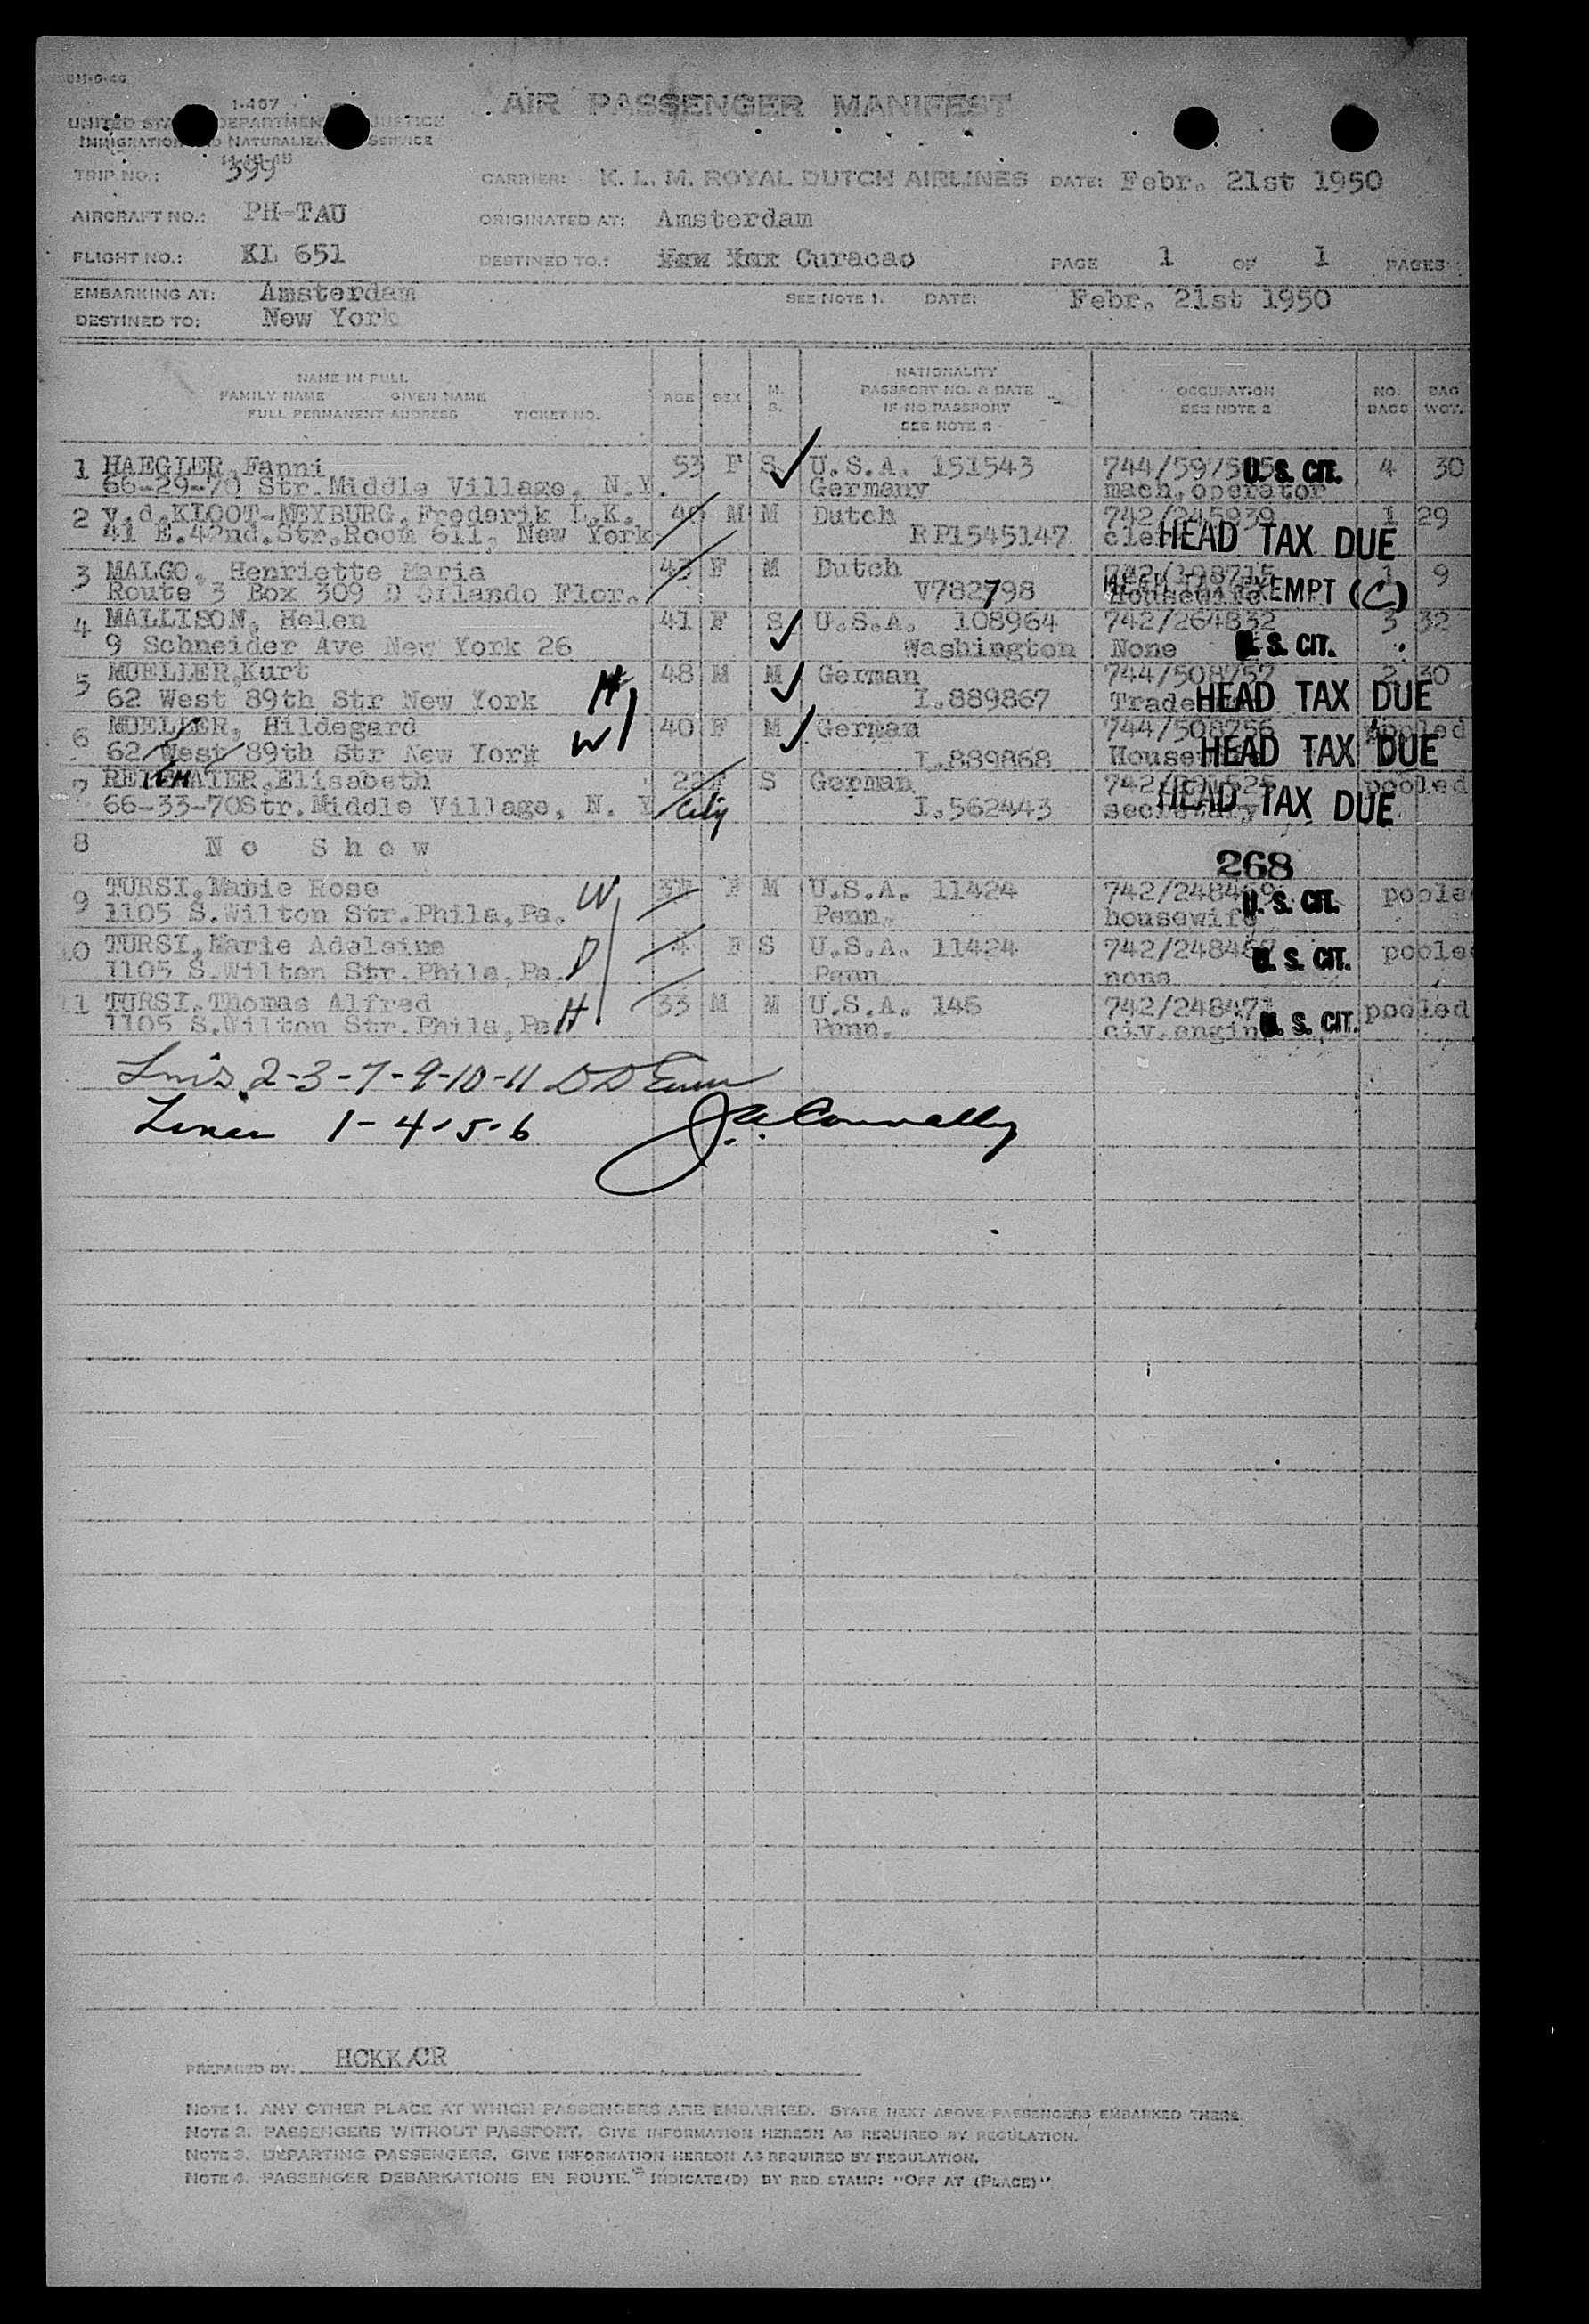 1-467
AIR PASSENGER MANIFEST
UNITED DEPARTMENT JUSTICE
IMMIGRATION NATURALIZATION SERVICE
TRIP NO.: 399 CARRIER: K. L. M. ROYAL DUTCH AIRLINES DATE: Febr. 21st 1950
AIRCRAFT NO.: PH-TAU ORIGINATED AT: Amsterdam
FLIGHT NO.: KL 651 DESTINED TO.: Curacao PAGE 1 OF 1 PAGES
EMBARKING AT: Amsterdam SEE NOTE 1. DATE: Febr. 21st 1950
DESTINED TO: New York
NAME IN FULL
FAMILY NAME GIVEN NAME
FULL PERMANENT ADDRESS TICKET NO.
AGE SEX M. S.
NATIONALITY
PASSPORT NO. & DATE
IF NO PASSPORT
SEE NOTE 2
OCCUPATION
SEE NOTE 2
NO. BAGS
BAG WGT.
1 HAEGLER, Fanni 53 F S U.S.A. 151543 U. S. CIT. 4 30
66-29-70 Str. Middle Village, N.Y. Germany mach.operator
2 v.d.KLOOT-MEYBURG, Frederik L.K. M M Dutch 742/245939 1 29
41 E.42nd.Str.Room 611, New York RP1545147 HEAD TAX DUE
3 MALGO, Henriette Maria F M Dutch 1 9
Route 3 Box 309 D Orlando Flor. V782798 housewife EXEMPT (C)
4 MALLISON, Helen 41 F S U.S.A. 108964 742/264832 3 32
9 Schneider Ave New York 26 Washington None U. S. CIT.
5 MUELLER, Kurt H 48 M M German 744/508757 2 30
62 West 89th Str New York I.889867 HEAD TAX DUE
6 MUELLER, Hildegard W 40 F M German 744/508756 pooled
62 West 89th Str New York I.889868 HEAD TAX DUE
7 Elisabeth 22 F S German pooled
66-33-70Str.Middle Village, N. Y City I.562443 HEAD TAX DUE
8 No Show
268
9 TURSI, Marie Rose W F M U.S.A. 11424 U. S. CIT. poole
1105 S.Wilton Str.Phila.Pa. Penn. housewife
10 TURSI, Marie Adelaine D 4 F S U.S.A. 11424 U. S. CIT. poole
1105 S.Wilton Str.Phila.Pa. Penn none
11 TURSI, Thomas Alfred H 33 M M U.S.A. 146 742/248471 pooled
1105 S.Wilton Str.Phila.Pa Penn. civ.engin U. S. CIT.
2-3-7-9-10-11
Lines 1-4-5-6 J.A. Connelly
PREPARED BY: HCKK/CR
NOTE 1. ANY OTHER PLACE AT WHICH PASSENGERS ARE EMBARKED. STATE NEXT ABOVE PASSENGERS EMBARKED THERE.
NOTE 2. PASSENGERS WITHOUT PASSPORT. GIVE INFORMATION HEREON AS REQUIRED BY REGULATION.
NOTE 3. DEPARTING PASSENGERS. GIVE INFORMATION HEREON AS REQUIRED BY REGULATION.
NOTE 4. PASSENGER DEBARKATIONS EN ROUTE. INDICATE(D) BY RED STAMP: "OFF AT (PLACE)"